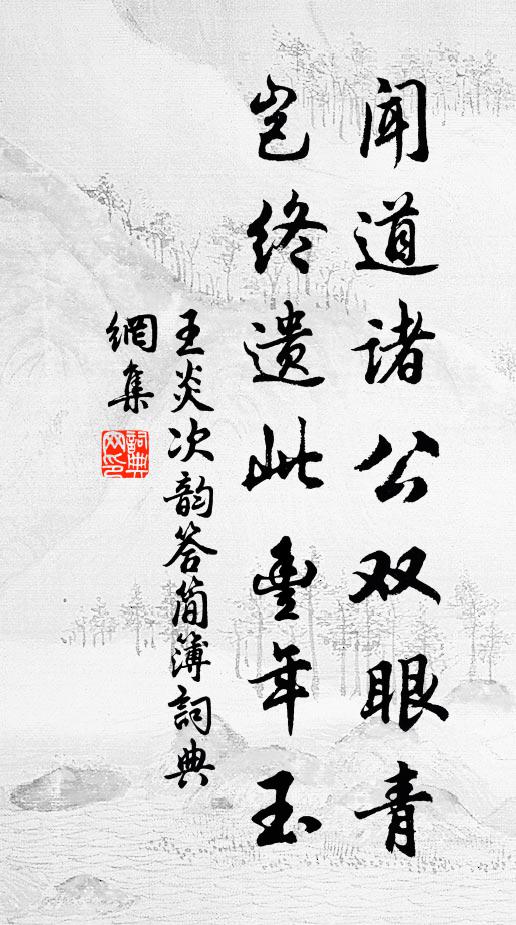 闻道诸公双眼青
岂终遗此豊年玉
王炎次韵答简簿詞典
網集
詞典
网印